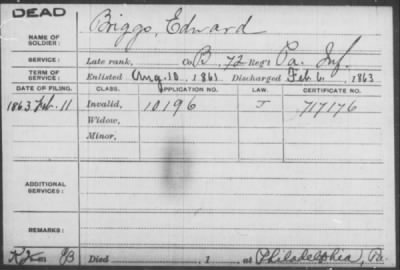 DEAD
NAME OF SOLDIER: Briggs, Edward
SERVICE: Late rank, Co. B, 72 Reg't Pa. Inf.
TERM OF SERVICE: Enlisted Aug. 10, 1861. Discharged Feb. 6, 1863
DATE OF FILING. CLASS. APPLICATION NO. LAW. CERTIFICATE NO.
1863 Feb. 11 Invalid, 10.196 J 717176
Widow,
Minor,
ADDITIONAL SERVICES:
REMARKS:
B Died 1 at Philadelphia, Pa.